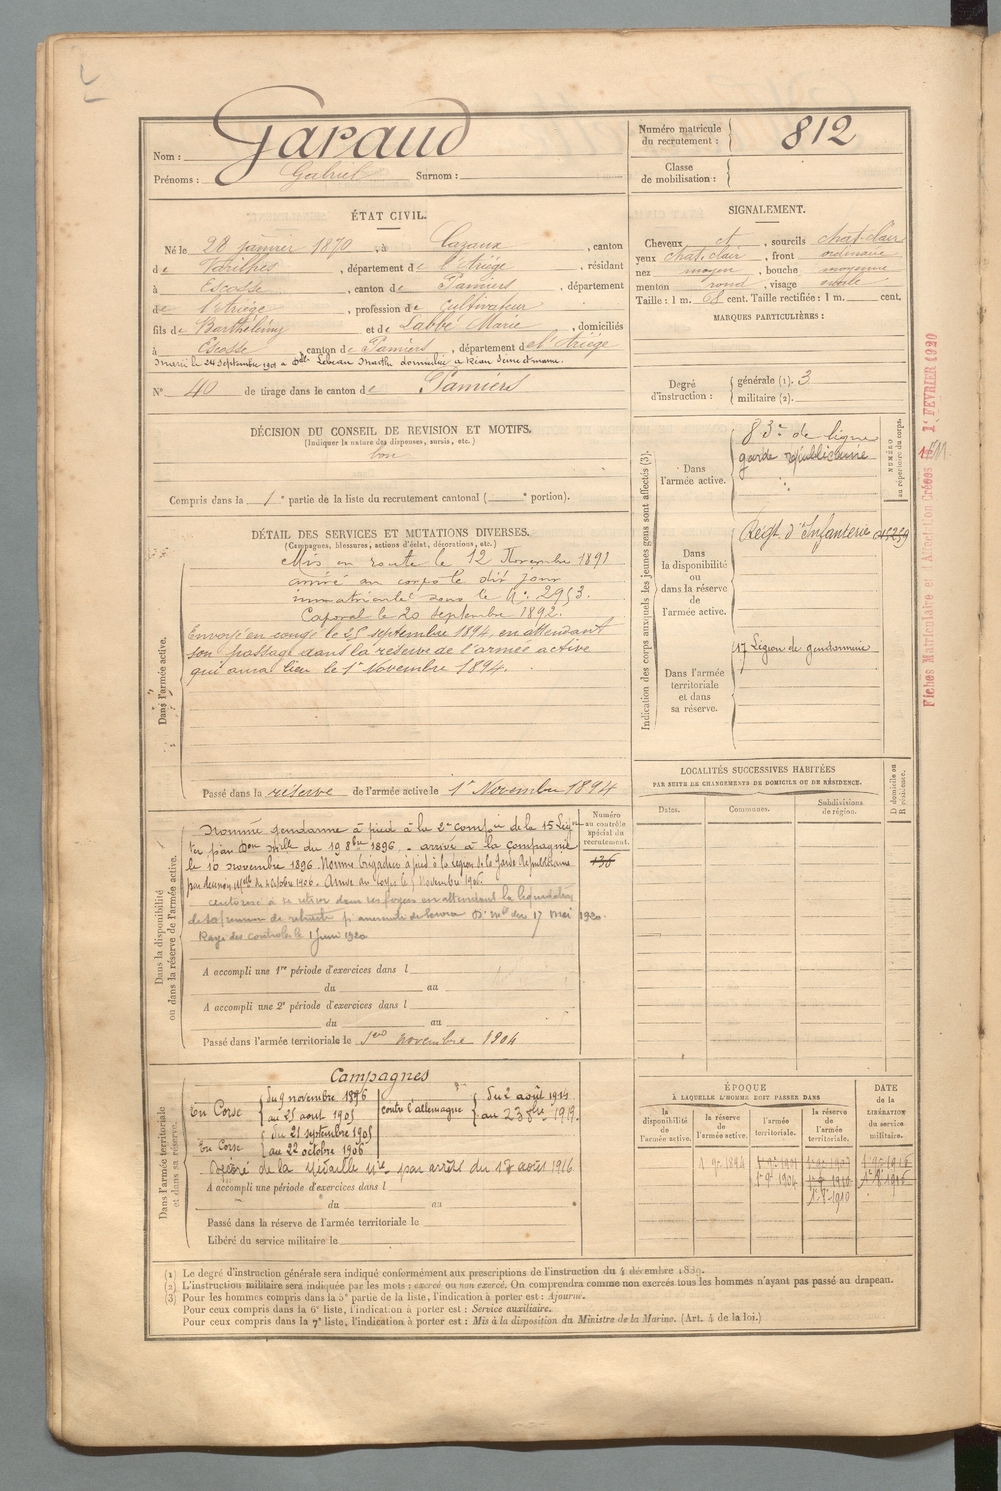 Nom : Garaud
Prénoms : Gabriel Surnom :
Numéro matricule du recrutement : 812
Classe de mobilisation :
ÉTAT CIVIL.
Né le 28 janvier 1870, à Cazaux, canton
de Varilhes, département de l'Ariège, résidant
à Escosse, canton de Pamiers, département
de l'Ariège, profession de Cultivateur
fils de Barthélémy et de Labbé Marie, domiciliés
à Escosse canton de Pamiers, département de l'Ariège
Marié le 24 septembre 1901 a Dlle Lebeau Marthe domiciliée a Seine et marne.
N° 40 de tirage dans le canton de Pamiers
SIGNALEMENT.
Cheveux et, sourcils chat. clair
yeux chat. clair, front ordinaire
nez moyen, bouche moyenne
menton rond, visage ovale
Taille : 1 m. 68 cent. Taille rectifiée : 1 m. cent.
MARQUES PARTICULIÈRES :
Degré d'instruction : générale (1). 3
militaire (2).
DÉCISION DU CONSEIL DE REVISION ET MOTIFS.
(Indiquer la nature des dispenses, sursis, etc.)
bon
Compris dans la 1e partie de la liste du recrutement cantonal ( e portion).
Indication des corps auxquels les jeunes gens sont affectés (3).
NUMÉRO au répertoire du corps.
Dans l'armée active.
83e de ligne
garde républicaine
Dans la disponibilité ou dans la réserve de l'armée active.
Régt. d'Infanterie
Dans l'armée territoriale et dans sa réserve.
17 Légion de gendarmerie
DÉTAIL DES SERVICES ET MUTATIONS DIVERSES.
(Campagnes, blessures, actions d'éclat, décorations, etc.)
Dans l'armée active.
Mis en route le 12 Novembre 1891
arrivé au corps le dit jour
immatriculé sous le N°. 2953.
Caporal le 20 septembre 1892.
Envoyé en congé le 25 septembre 1894, en attendant
son passage dans la réserve de l'armée active
qui aura lieu le 1er Novembre 1894.
Passé dans la réserve de l'armée active le 1er Novembre 1894
Dans la disponibilité ou dans la réserve de l'armée active.
Numéro au contrôle spécial du recrutement.
Nommé gendarme à pied à la 2e compie de la 15 Légion
ter par Don mlle du 19 8bre 1896. - arrivé à la compagnie
le 10 novembre 1896. Nommé brigadier à pied à la Légion de la Garde Républicaine
par decision Mlle du 4 octobre 1906. Arrivé au corps le 5 Novembre 1906.
autorisé à se retirer dans ses foyers en attendant la liquidation
de sa pension de retraite p. ancienneté de service D. mlle du 17 Mai 1920.
Rayé des controles le 1 Juin 1920
A accompli une 1re période d'exercices dans l
du au
A accompli une 2e période d'exercices dans l
du au
Passé dans l'armée territoriale le 1er novembre 1904
LOCALITÉS SUCCESSIVES HABITÉES
PAR SUITE DE CHANGEMENTS DE DOMICILE OU DE RÉSIDENCE.
Dates. Communes. Subdivisions de région. D domicile ou R résidence.
Dans l'armée territoriale et dans sa réserve.
Campagnes
En Corse du 9 novembre 1896 au 25 aout 1905
contre l'allemagne du 2 août 1914 au 23 8bre 1919.
En Corse du 21 septembre 1905 au 22 octobre 1906
Décoré de la Médaille Mre par arrêté du 18 août 1916
A accompli une période d'exercices dans l
du au
Passé dans la réserve de l'armée territoriale le
Libéré du service militaire le
ÉPOQUE
À LAQUELLE L'HOMME DOIT PASSER DANS
la disponibilité de l'armée active. la réserve de l'armée active. l'armée territoriale. la réserve de l'armée territoriale.
DATE de la LIBÉRATION du service militaire.
1er 9e 1894
1er 9e 1904
1er 8e 1910
(1) Le degré d'instruction générale sera indiqué conformément aux prescriptions de l'instruction du 4 décembre 1889.
(2) L'instruction militaire sera indiquée par les mots : exercé ou non exercé. On comprendra comme non exercés tous les hommes n'ayant pas passé au drapeau.
(3) Pour les hommes compris dans la 5e partie de la liste, l'indication à porter est : Ajourné.
Pour ceux compris dans la 6e liste, l'indication à porter est : Service auxiliaire.
Pour ceux compris dans la 7e liste, l'indication à porter est : Mis à la disposition du Ministre de la Marine. (Art. 4 de la loi.)
Fiches Matriculaire et d'Affectation Créées 1r FÉVRIER 1920